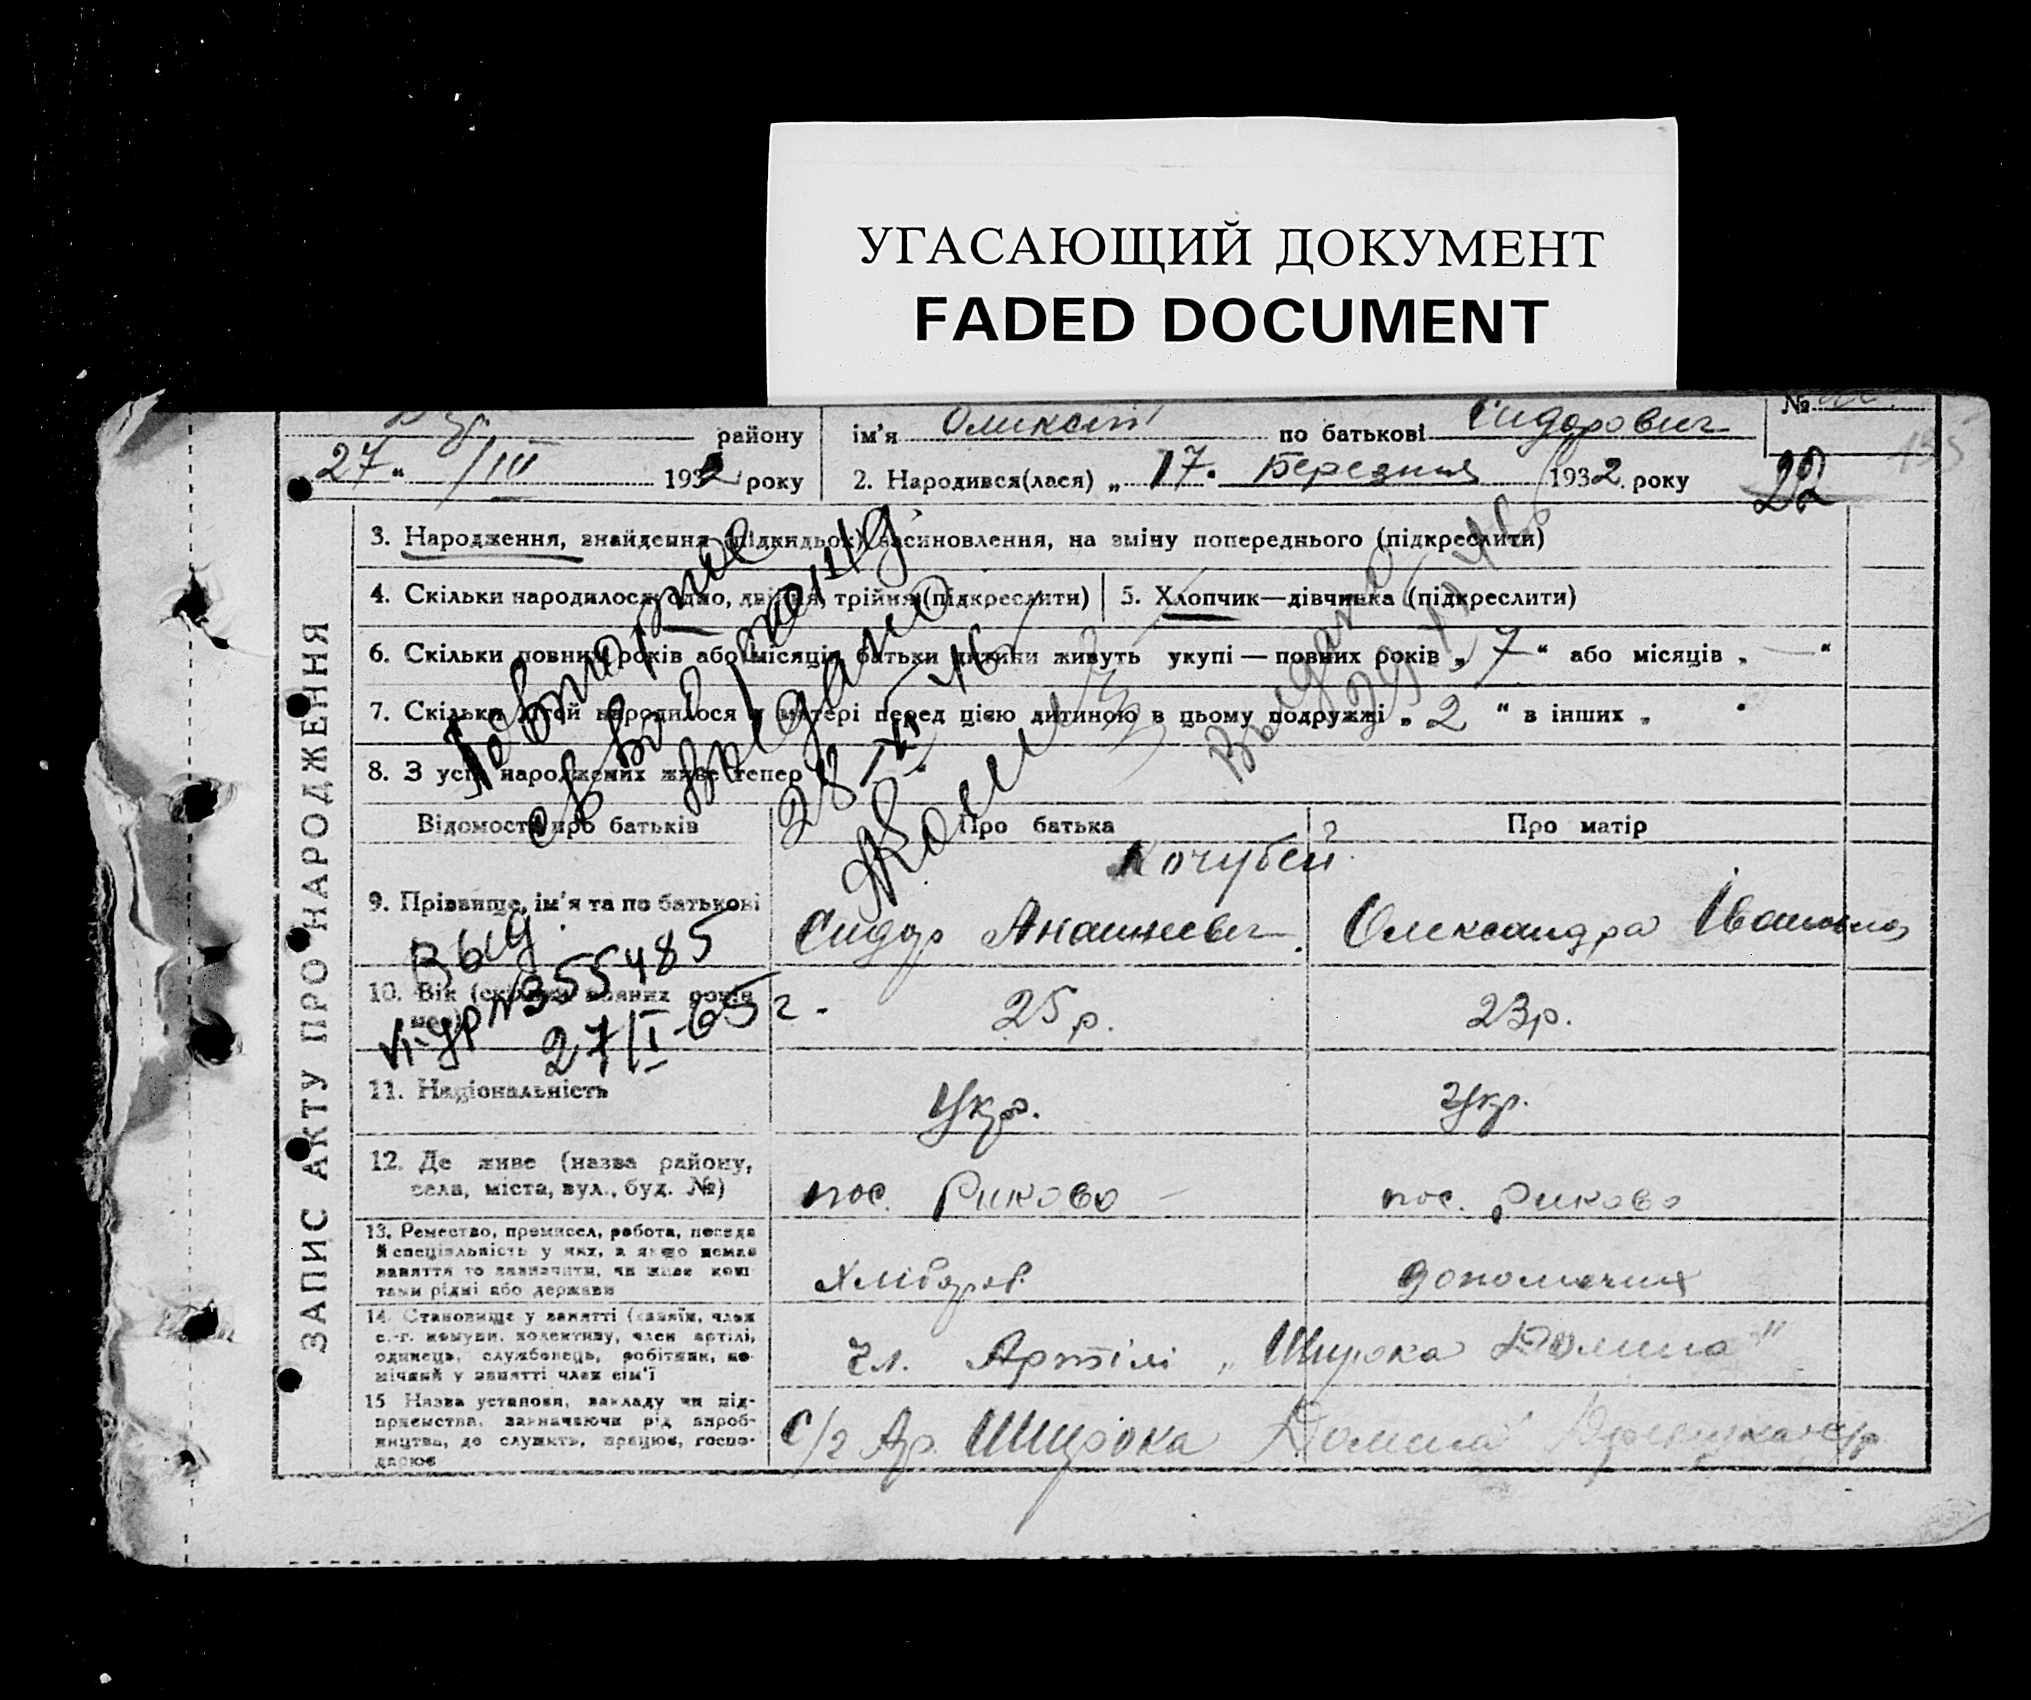 УГАСАЮЩИЙ ДОКУМЕНТ
FADED DOCUMENT
району
ім'я
по батькові Сидорович
№
27 " /III 1932 року
2. Народився(лася) „ 17 " Березня 1932 року
22
155
ЗАПИС АКТУ ПРО НАРОДЖЕННЯ
3. Народження, знайдення (підкидьок), всиновлення, на зміну попереднього (підкреслити)
4. Скільки народилося: одно, двійня, трійня (підкреслити)
5. Хлопчик—дівчинка (підкреслити)
6. Скільки повних років або місяців батьки дитини живуть укупі — повних років „ 7 " або місяців „ — "
7. Скільки дітей народилося у матері перед цією дитиною в цьому подружжі „ 2 " в інших „ "
8. З усіх народжених живе тепер
Повторное
св во
выдано
28
Выдано
Відомості про батьків
Про батька
Про матір
Кочубей
9. Прізвище, ім'я та по батькові
Сидор
Олександра Івановна
Выд.
№355485
27/I-65 г.
10. Вік (скільки повних років
25 р.
23 р.
11. Національність
Укр.
Укр.
12. Де живе (назва району,
села, міста, вул., буд. №)
пос. Риково —
пос. Риково
13. Ремество, промисел, робота, посада
й спеціальність у них, а якщо немає
заняття то зазначити, чи живе кош-
тами рідні або держави
Хлібороб
14. Становище у занятті (хазяїн, член
с.-г. комуни, колективу, член артілі,
одинець, службовець, робітник, по-
мічний у занятті член сім'ї
Чл. Артілі „Широка Долина"
15 Назва установи, закладу чи під-
приємства, зазначаючи рід вироб-
ництва, де служить, працює, госпо-
дарює
С/г Ар. Широка Долина